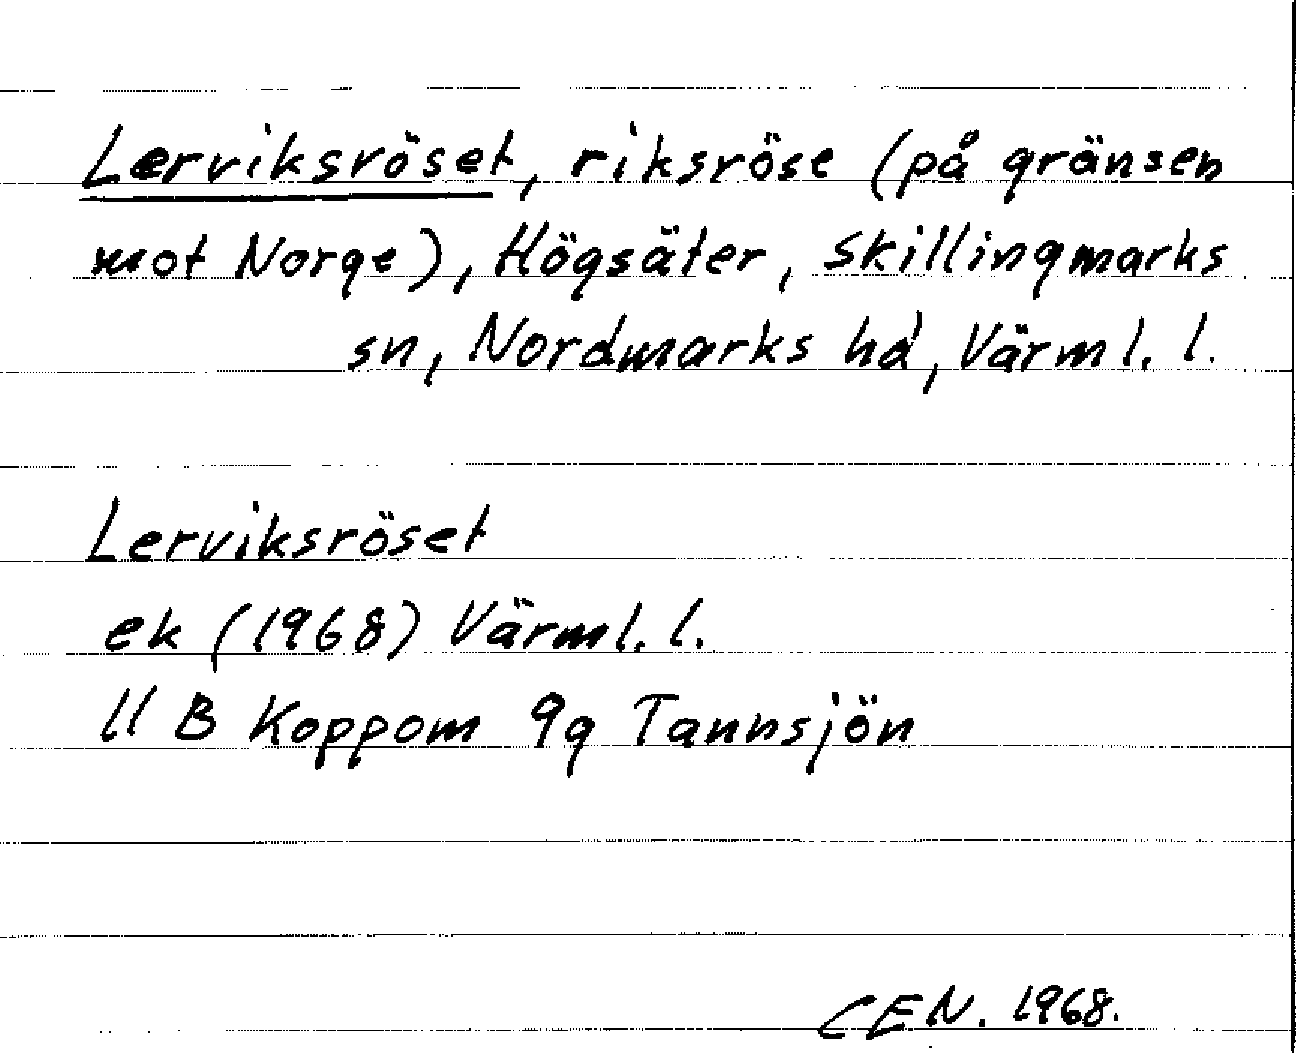 Lerviksröset, riksröse (på gränsen
mot Norge), Högsäter, Skillingmarks
sn, Nordmarks hd, Värml. l.
Lerviksröset
ek (1968) Värml. l.
11 B Koppom 9g Tannsjön
CEN. 1968.